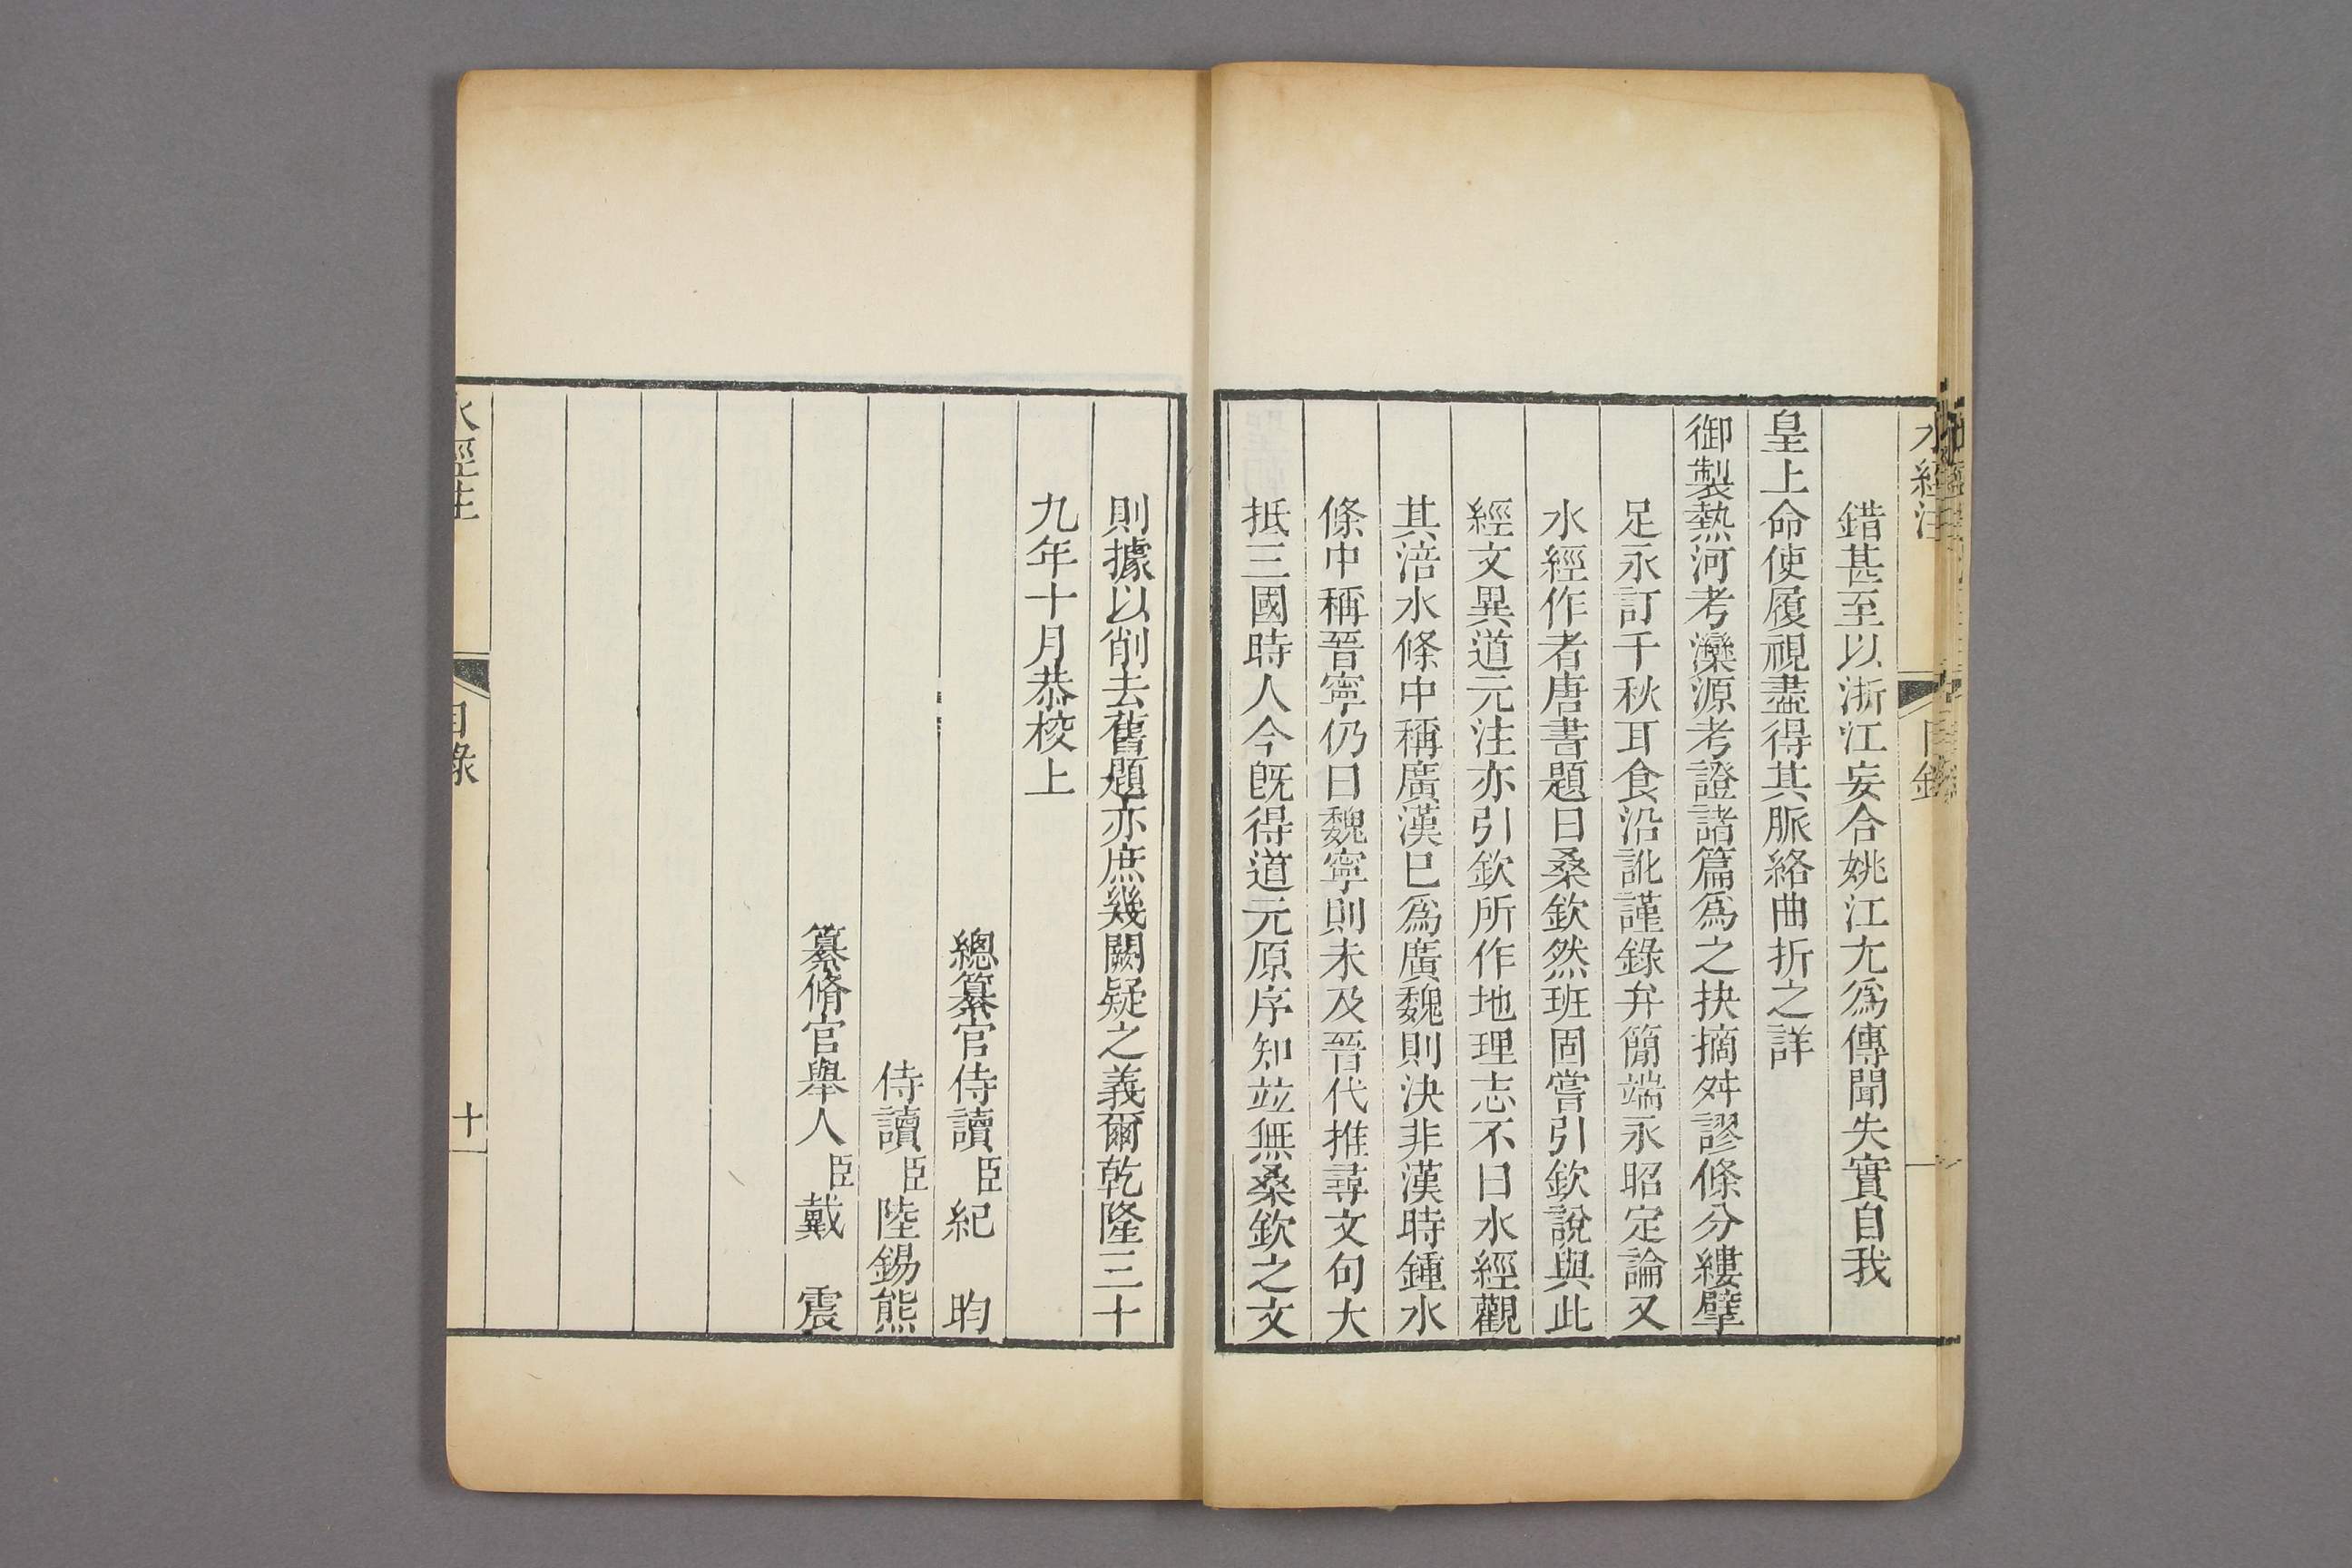 水經注
目錄
錯甚至以浙江妄合姚江尤爲傳聞失實自我
皇上命使履視盡得其脈絡曲折之詳
御製熱河考灤源考證諸篇爲之抉摘舛謬條分縷擘
足永訂千秋耳食沿訛謹錄弁簡端永昭定論又
水經作者唐書題曰桑欽然班固嘗引欽說與此
經文異道元注亦引欽所作地理志不曰水經觀
其涪水條中稱廣漢已爲廣魏則決非漢時鍾水
條中稱晉寧仍曰魏寧則未及晉代推尋文句大
抵三國時人今旣得道元原序知並無桑欽之文
則據以削去舊題亦庶幾闕疑之義爾乾隆三十
九年十月恭校上
總纂官侍讀臣紀昀
侍讀臣陸錫熊
纂脩官舉人臣戴震
水經注
目錄
十一